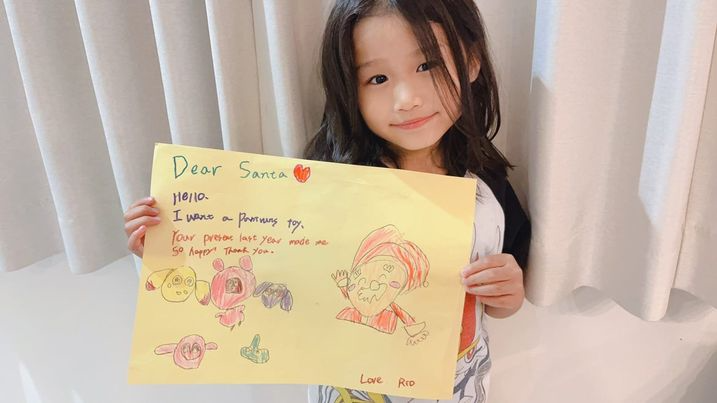 Dear Santa
Hello.
I want a
toy.
Your present last year made me
So happy! Thank you.
Love Rio